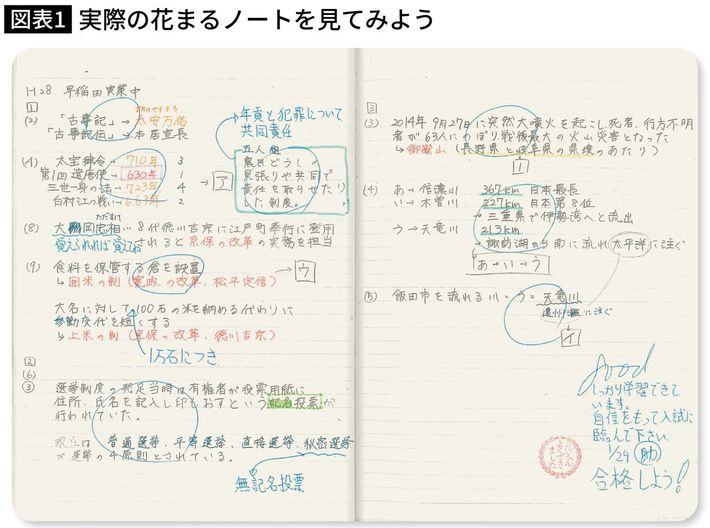 図表1 実際の花まるノートを見てみよう
H28 早稲田実業中
1
(2) 「古事記」→太安万侶
「古事記伝」→本居宣長
年貢と犯罪について
共同責任
(4) 太宝律令→710年 3
第1回遣唐使→630年 1
三世一身の法→723年 4
白村江の戦い→663年 2
ア
五人組
農民どうしの
見張りや共同で
責任を取らせたり
した制度。
(8) 大岡忠相…8代徳川吉宗に江戸町奉行に登用
されると享保の改革の実務を担当
ただすけ
覚えられれば覚えてね
(9) 食料を保管する倉を設置
→囲米の制(寛政の改革、松平定信)
ウ
大名に対して100石の米を納める代わりに
参勤交代を短くする
→上米の制(享保の改革、徳川吉宗)
1万石につき
2
(6)
③ 選挙制度の発足当時は有権者が投票用紙に
住所、氏名を記入し印をおすという記名投票が
行われていた。
現在は普通選挙、平等選挙、直接選挙、秘密選挙
が選挙の4原則とされている。
無記名投票
3
(3) 2014年9月27日に突然大噴火を起こし死者、行方不明
者が63人にのぼり戦後最大の火山災害となった
→御嶽山(長野県と岐阜県の県境のあたり)
(4) あ→信濃川 367km 日本最長
い→木曽川 227km 日本第8位
→三重県で伊勢湾へと流出
う→天竜川 213km
→諏訪湖から南に流れ太平洋に注ぐ
あ→い→う
⑤ 飯田市を流れる川…う=天竜川
遠州灘に注ぐ
イ
Good
しっかり学習できて
います。
自信をもって入試に
臨んで下さい。
1/29
合格しよう!